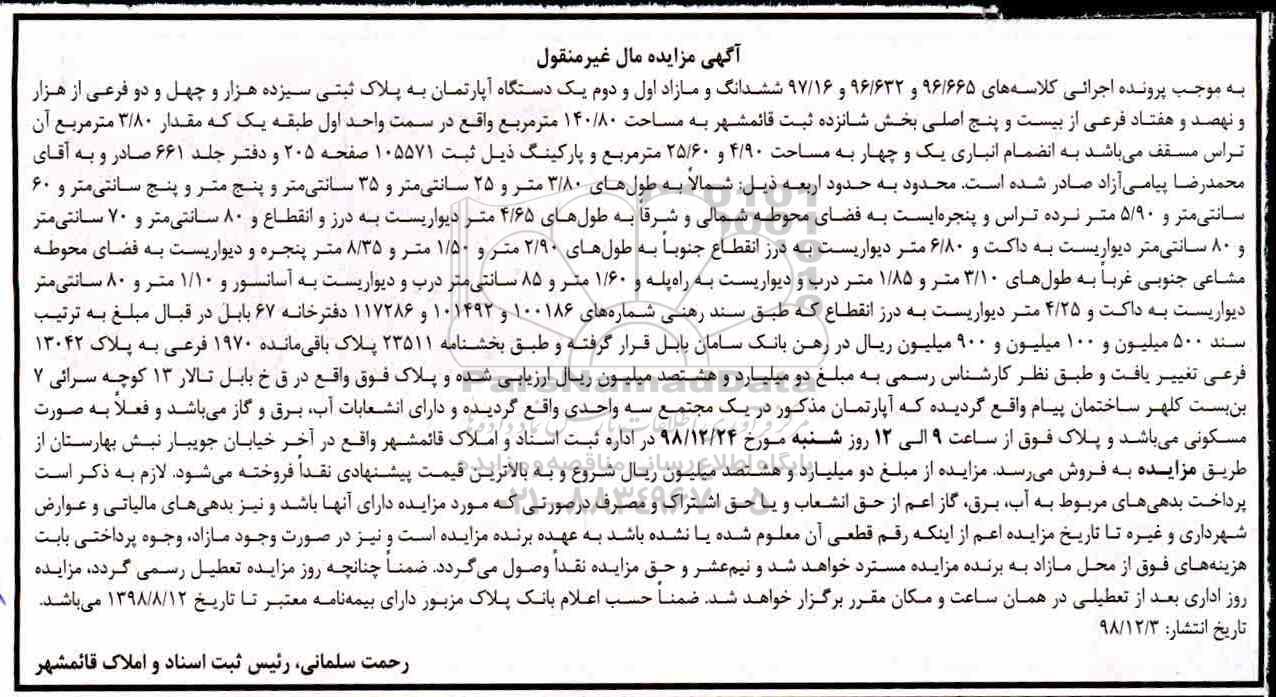 آگهی مزایده مال غیرمنقول
به موجب پرونده اجرائی کلاسه‌های ۹۶/۶۶۵ و ۹۶/۶۳۲ و ۹۷/۱۶ ششدانگ و مازاد اول و دوم یک دستگاه آپارتمان به پلاک ثبتی سیزده هزار و چهل و دو فرعی از هزار
و نهصد و هفتاد فرعی از بیست و پنج اصلی بخش شانزده ثبت قائمشهر به مساحت ۱۴۰/۸۰ مترمربع واقع در سمت واحد اول طبقه یک که مقدار ۳/۸۰ مترمربع آن
تراس مسقف می‌باشد به انضمام انباری یک و چهار به مساحت ۴/۹۰ و ۲۵/۶۰ مترمربع و پارکینگ ذیل ثبت ۱۰۵۵۷۱ صفحه ۲۰۵ و دفتر جلد ۶۶۱ صادر و به آقای
محمدرضا پیامی‌آزاد صادر شده است. محدود به حدود اربعه ذیل: شمالاً به طول‌های ۳/۸۰ متر و ۲۵ سانتی‌متر و ۳۵ سانتی‌متر و پنج متر و پنج سانتی‌متر و ۶۰
سانتی‌متر و ۵/۹۰ متر نرده تراس و پنجره‌ایست به فضای محوطه شمالی و شرقاً به طول‌های ۴/۶۵ متر دیواریست به درز و انقطاع و ۸۰ سانتی‌متر و ۷۰ سانتی‌متر
و ۸۰ سانتی‌متر دیواریست به داکت و ۶/۸۰ متر دیواریست به درز انقطاع جنوباً به طول‌های ۲/۹۰ متر و ۱/۵۰ متر و ۸/۳۵ متر پنجره و دیواریست به فضای محوطه
مشاعی جنوبی غرباً به طول‌های ۳/۱۰ متر و ۱/۸۵ متر درب و دیواریست به راه‌پله و ۱/۶۰ متر و ۸۵ سانتی‌متر درب و دیواریست به آسانسور و ۱/۱۰ متر و ۸۰ سانتی‌متر
دیواریست به داکت و ۴/۲۵ متر دیواریست به درز انقطاع که طبق سند رهنی شماره‌های ۱۰۰۱۸۶ و ۱۰۱۴۹۲ و ۱۱۷۲۸۶ دفترخانه ۶۷ بابل در قبال مبلغ به ترتیب
سند ۵۰۰ میلیون و ۱۰۰ میلیون و ۹۰۰ میلیون ریال در رهن بانک سامان بابل قرار گرفته و طبق بخشنامه ۲۳۵۱۱ پلاک باقی‌مانده ۱۹۷۰ فرعی به پلاک ۱۳۰۴۲
فرعی تغییر یافت و طبق نظر کارشناس رسمی به مبلغ دو میلیارد و هشتصد میلیون ریال ارزیابی شده و پلاک فوق واقع در ق خ بابل تالار ۱۳ کوچه سرائی ۷
بن‌بست کلهر ساختمان پیام واقع گردیده که آپارتمان مذکور در یک مجتمع سه واحدی واقع گردیده و دارای انشعابات آب، برق و گاز می‌باشد و فعلاً به صورت
مسکونی می‌باشد و پلاک فوق از ساعت ۹ الی ۱۲ روز شنبه مورخ ۹۸/۱۲/۲۴ در اداره ثبت اسناد و املاک قائمشهر واقع در آخر خیابان جویبار نبش بهارستان از
طریق مزایده به فروش می‌رسد. مزایده از مبلغ دو میلیارد و هشتصد میلیون ریال شروع و به بالاترین قیمت پیشنهادی نقداً فروخته می‌شود. لازم به ذکر است
پرداخت بدهی‌های مربوط به آب، برق، گاز اعم از حق انشعاب و یا حق اشتراک و مصرف درصورتی که مورد مزایده دارای آنها باشد و نیز بدهی‌های مالیاتی و عوارض
شهرداری و غیره تا تاریخ مزایده اعم از اینکه رقم قطعی آن معلوم شده یا نشده باشد به عهده برنده مزایده است و نیز در صورت وجود مازاد، وجوه پرداختی بابت
هزینه‌های فوق از محل مازاد به برنده مزایده مسترد خواهد شد و نیم‌عشر و حق مزایده نقداً وصول می‌گردد. ضمناً چنانچه روز مزایده تعطیل رسمی گردد، مزایده
روز اداری بعد از تعطیلی در همان ساعت و مکان مقرر برگزار خواهد شد. ضمناً حسب اعلام بانک پلاک مزبور دارای بیمه‌نامه معتبر تا تاریخ ۱۳۹۸/۸/۱۲ می‌باشد.
تاریخ انتشار: ۹۸/۱۲/۳
رحمت سلمانی، رئیس ثبت اسناد و املاک قائمشهر